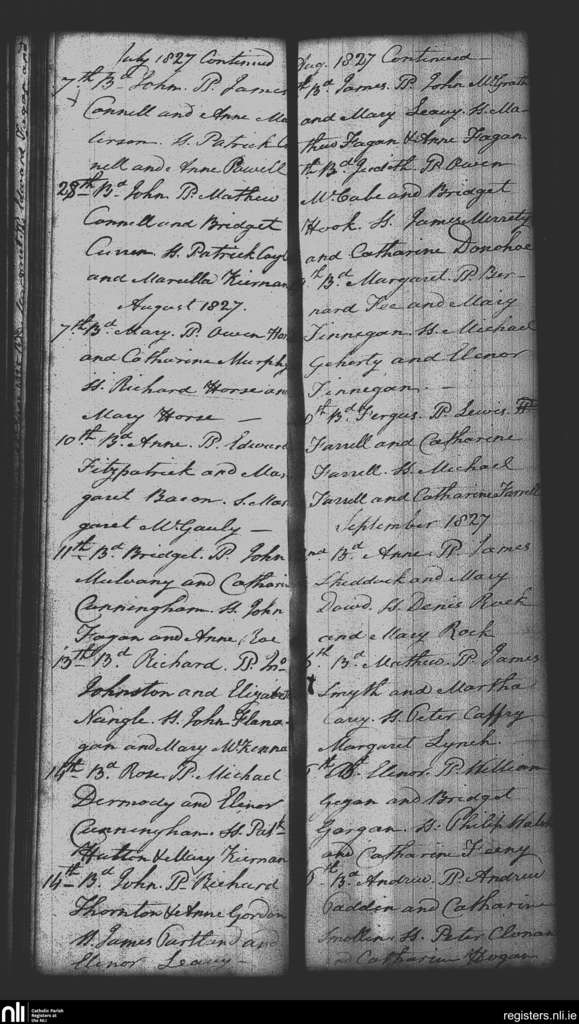 July 1827 Continued
7th Bd John. P. James
Connell and Anne
H. Patrick
nell and Anne Powell
28th Bd John P. Mathew
Connell and Bridget
Curren. H. Patrick
and Marcella Kiernan
August 1827.
7th Bd Mary. P. Owen
and Catharine Murphy
H. Richard Horse and
Mary Horse —
10th Bd Anne. P. Edward
Fitzpatrick and Mar
garet Bacon. S. Mar
garet McGauly —
11th Bd Bridget. P. John
Mulvany and Cathari
Cunningham. H. John
Fagan and Anne
13th Bd Richard. P. Jno
Johnston and Elizabet
Nangle. H. John Flana
gan and Mary McKenna
14th Bd Rose. P. Michael
Dermody and Elinor
Cunningham. H. Patk
Hutton & Mary Kiernan
14th Bd John. P. Richard
Thornton & Anne Gordon
H. James Partland and
Elenor Leavy —
Aug. 1827 Continued —
th Bd James. P. John McGrath
and Mary Leavy. H. Ma
thew Fagan & Anne Fagan
th Bd Joseth P. Owen
McCabe and Bridget
Hook. H. James
and Catharine Donohoe
th Bd Margaret P. Ber-
nard Foe and Mary
Finnegan. H. Michael
Geherty and Elenor
Finnegan. —
th Bd Fergus. P. Lewis
Farrell and Catharine
Farrell. H. Michael
Farrell and Catharine Farrell
September 1827
2nd Bd Anne. P. James
Shedduck and Mary
Dowd. H. Denis Rock
and Mary Rock
th Bd Mathew. P. James
Smyth and Martha
Carey. H. Peter Caffry
Margaret Lynch.
th Bd Elenor. P. William
Gegan and Bridget
Gargan. H. Philip
and Catharin Feeny
th Bd Andrew P. Andrew
Paddin and Catharine
H. Peter
and Catharin Hogan
nli
Catholic Parish
Registers at
the NLI
registers.nli.ie